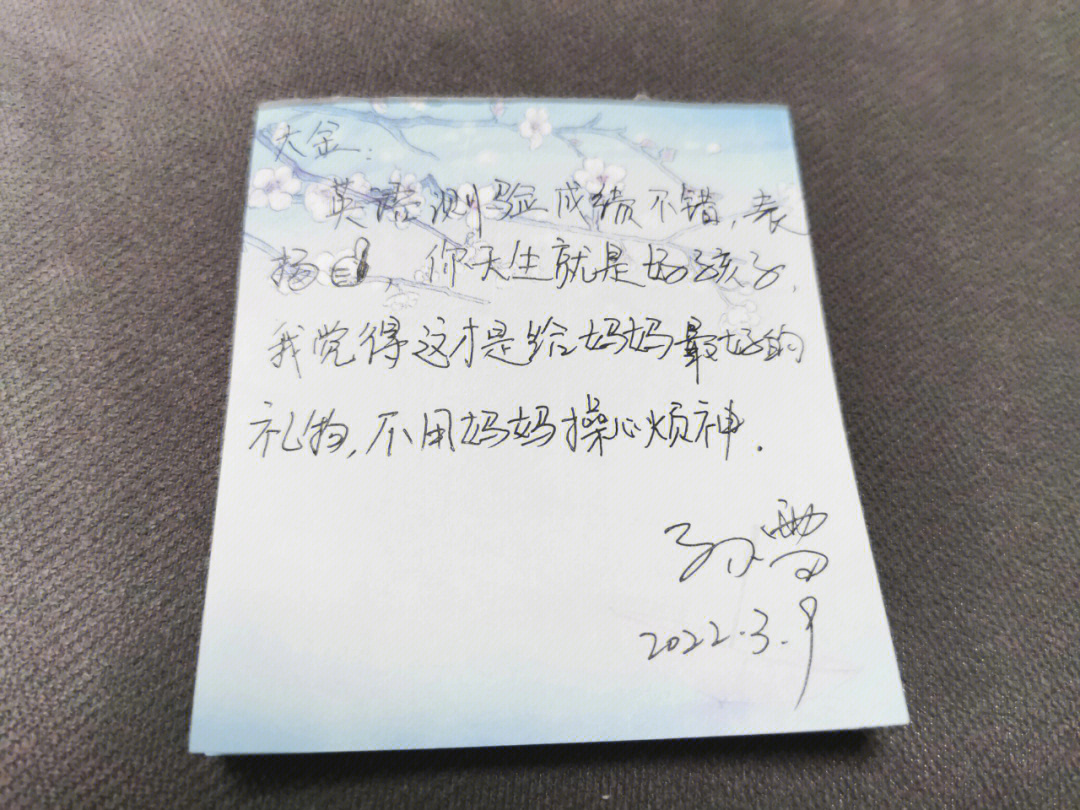 大金:
英语测验成绩不错,表
扬,你天生就是好孩子,
我觉得这才是给妈妈最好的
礼物,不用妈妈操心烦神.
孙雪
2022.3.9